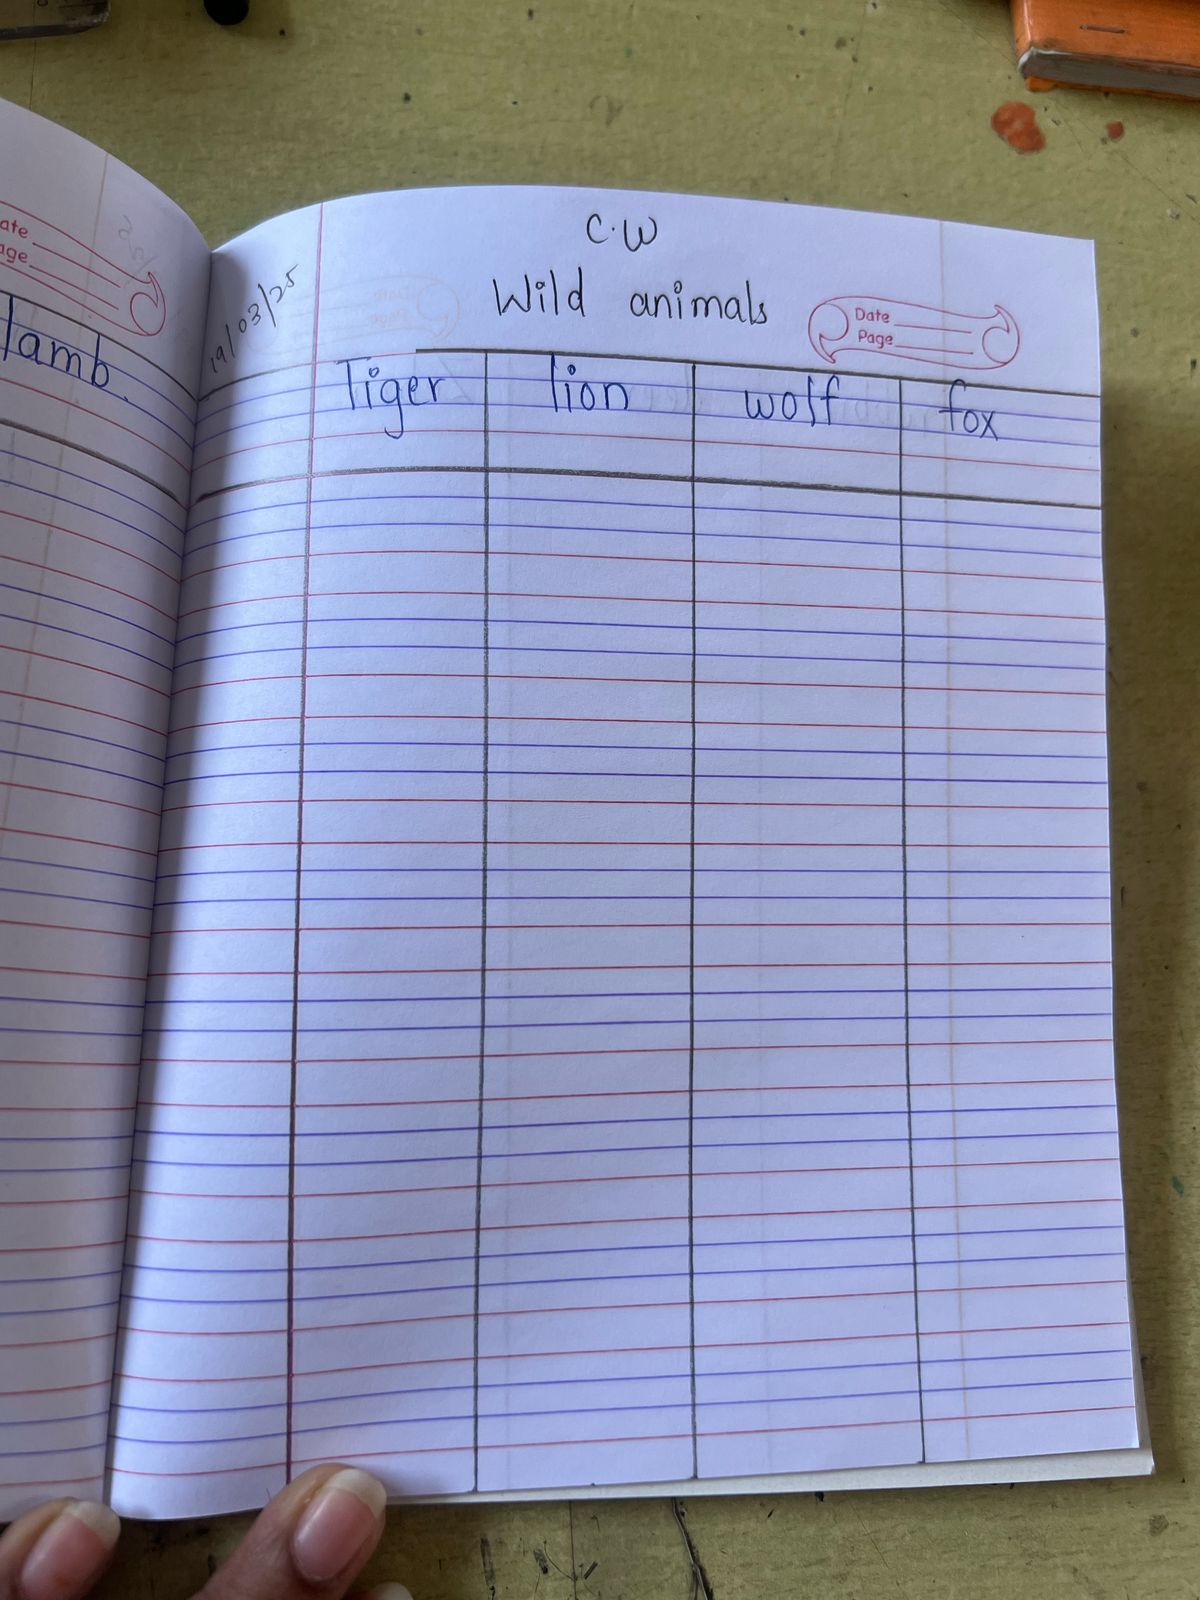 ate
age
lamb.
C.W
19/03/25
Wild animals
Date
Page
Tiger lion wolf fox